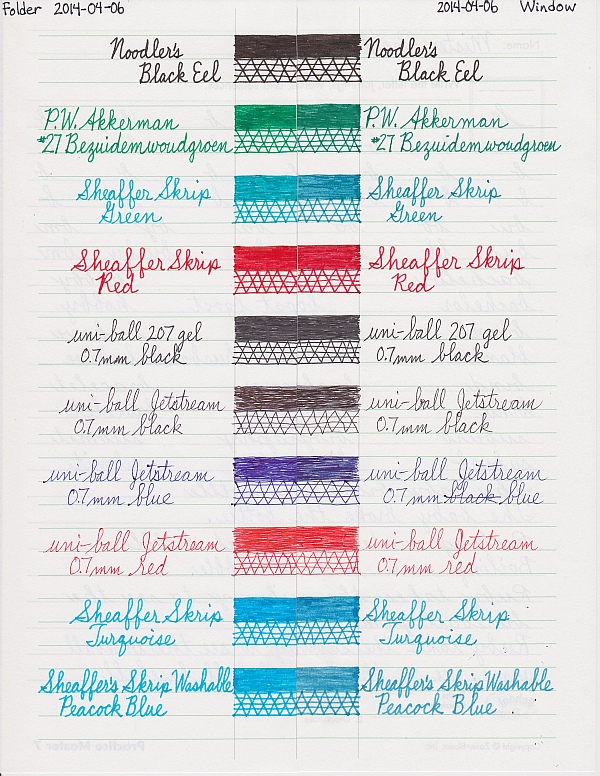 Folder 2014-04-06 2014-04-06 Window
Noodler's Noodler's
Black Eel Black Eel
P.W. Akkerman P.W. Akkerman
#27 Bezuidemwoudgroen #27 Bezuidemwoudgroen
Sheaffer Skrip Sheaffer Skrip
Green Green
Sheaffer Skrip Sheaffer Skrip
Red Red
uni-ball 207 gel uni-ball 207 gel
0.7mm black 0.7mm black
uni-ball Jetstream uni-ball Jetstream
0.7mm black 0.7mm black
uni-ball Jetstream uni-ball Jetstream
0.7mm blue 0.7mm black blue
uni-ball Jetstream uni-ball Jetstream
0.7mm red 0.7mm red
Sheaffer Skrip Sheaffer Skrip
Turquoise Turquoise
Sheaffer's Skrip Washable Sheaffer's Skrip Washable
Peacock Blue Peacock Blue
Practice Master 7